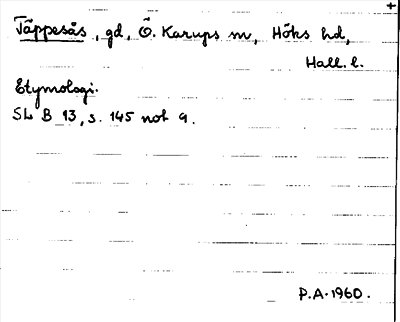 Täppesås, gd, Ö. Karups sn, Höks hd,
Hall. l.
Etymologi.
SL B 13, s. 145 not 9.
P.A. 1960.